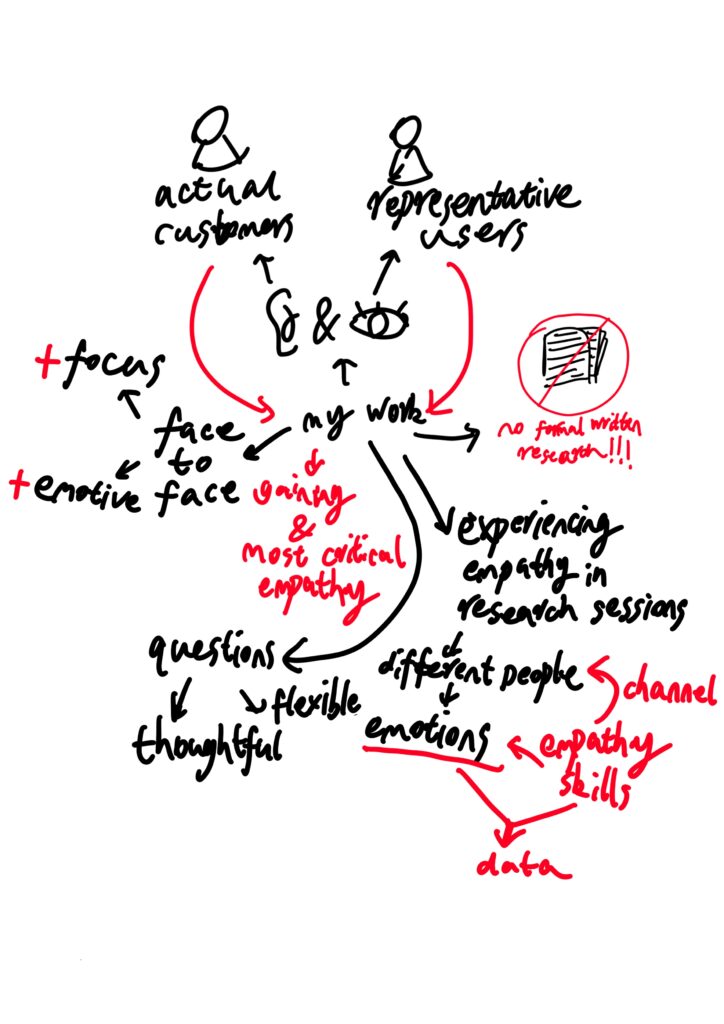 actual
customers
representative
users
&
+focus
face
to
face
+emotive
my work
no formal written
research!!!
gaining
&
most critical
empathy
experiencing
empathy in
research sessions
questions
flexible
thoughtful
different people
emotions
channel
empathy
skills
data